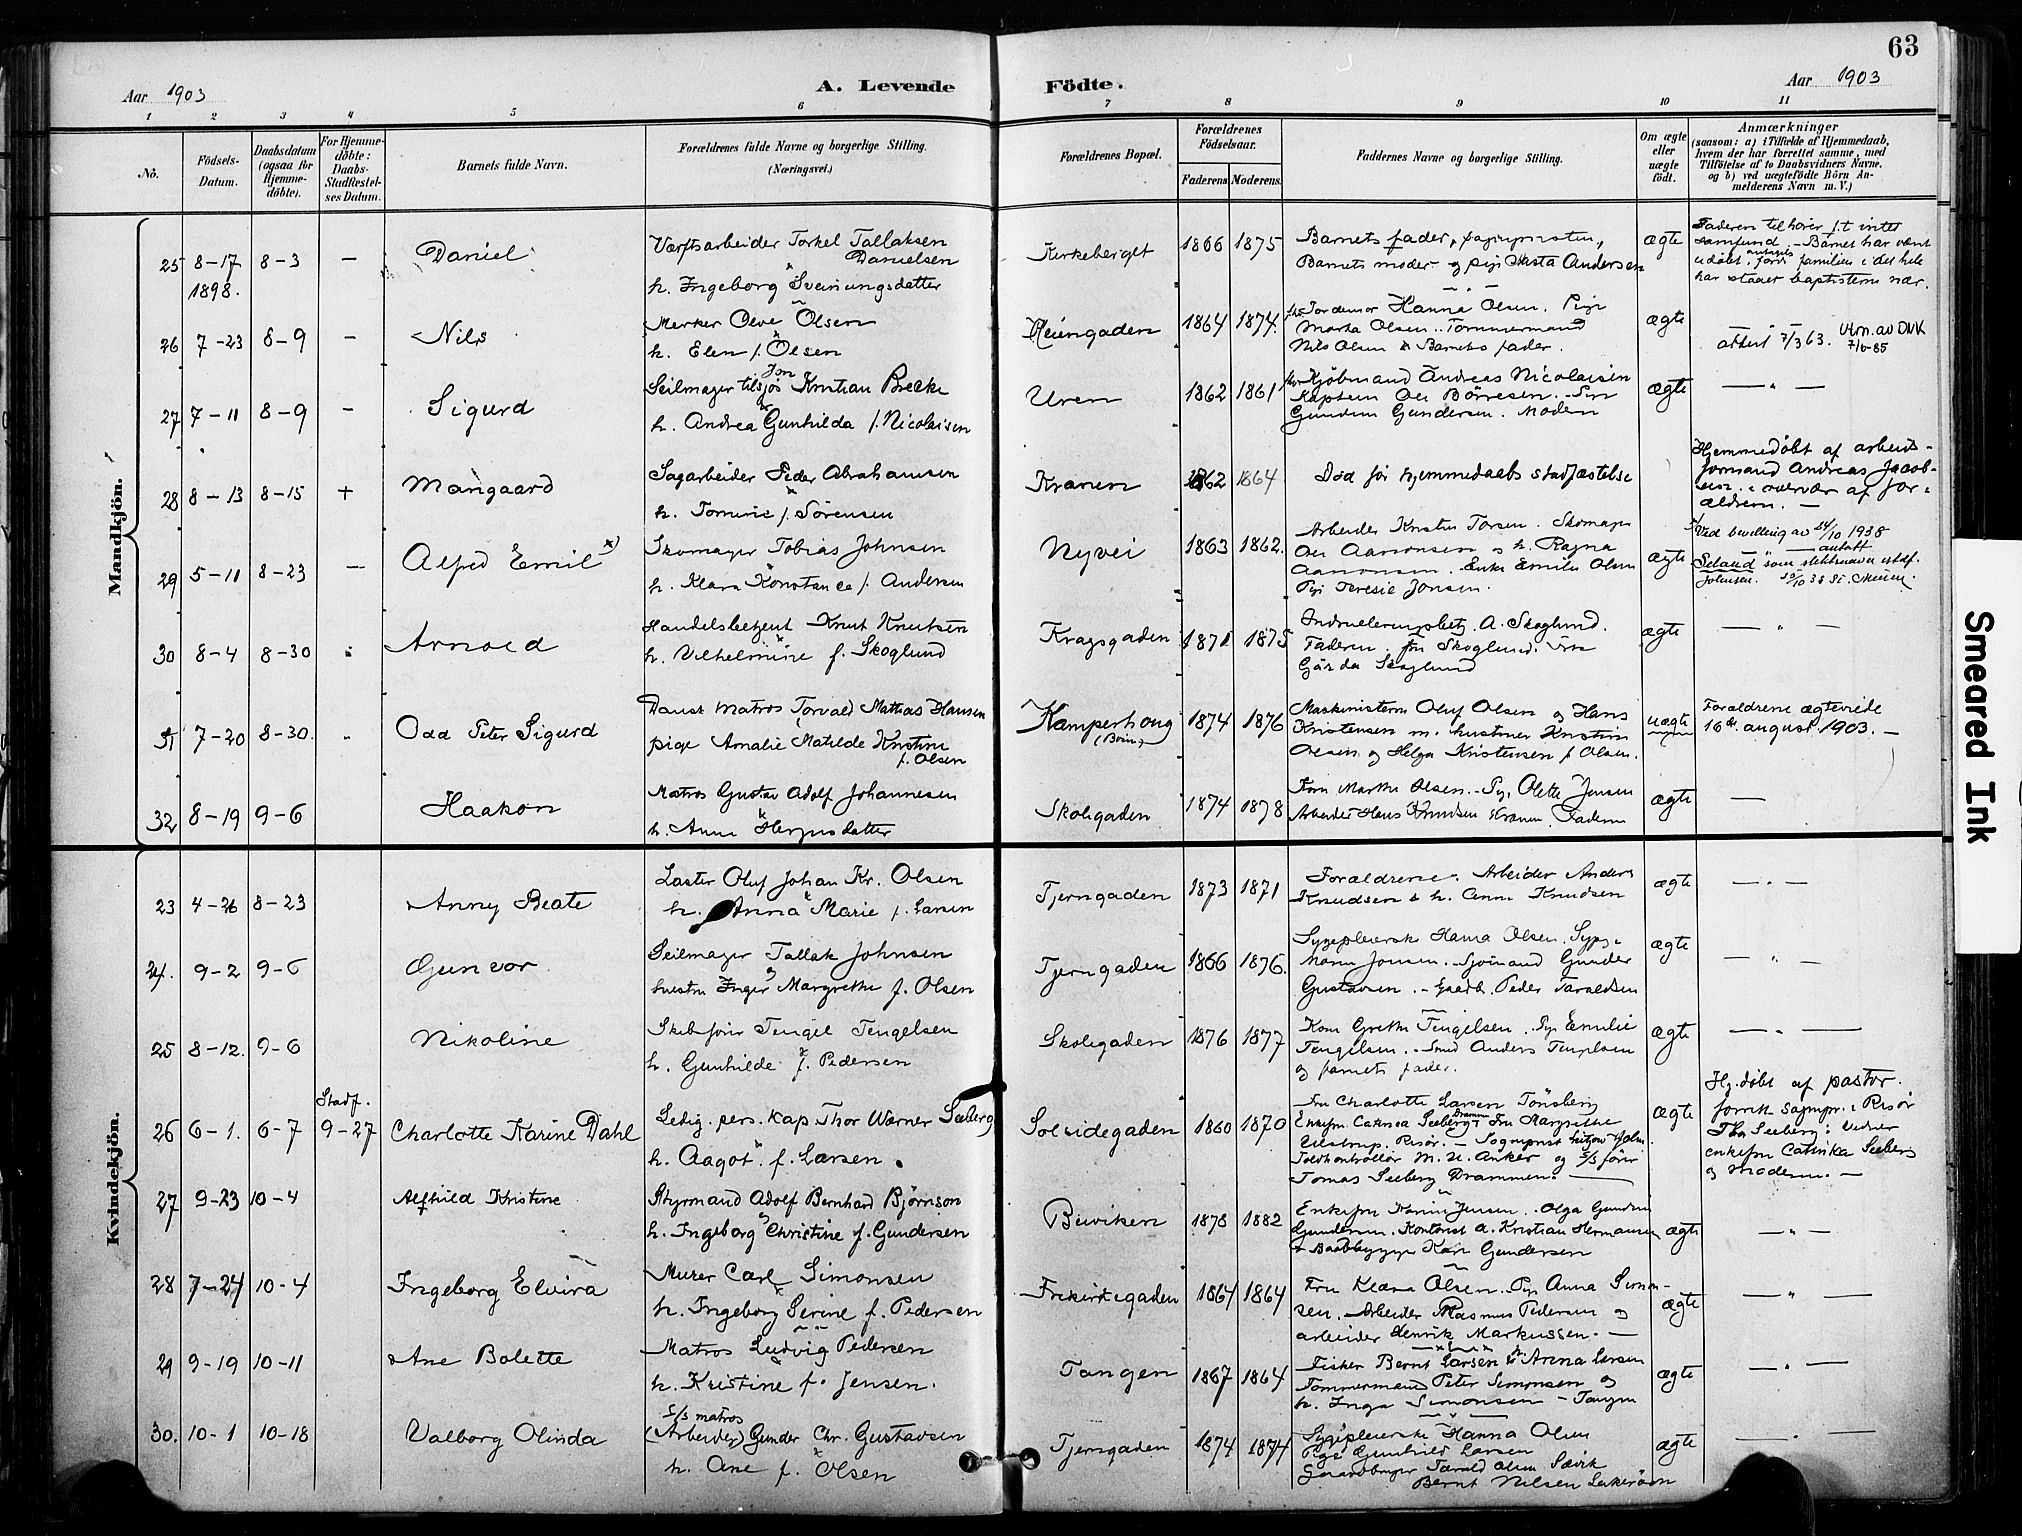 63
Aar 1903
A. Levende
Födte.
Aar 1903
1 2 3 4 5 6 7 8 9 10 11
No.
Födsels-Datum.
Daabsdatum (ogsaa for Hjemmedöbte).
For Hjemmedöbte: Daabs-Stadfestelses Datum.
Barnets fulde Navn.
Forældrenes fulde Navne og borgerlige Stilling.
(Næringsvei.)
Forældrenes Bopæl.
Forældrenes Födselsaar.
Faderens. Moderens.
Faddernes Navne og borgerlige Stilling.
Om ægte eller uægte födt.
Anmærkninger
(saasom: a) i Tilfælde af Hjemmedaab, hvem der har forrettet samme, med Tilföielse af to Daabsvidners Navne, og b) ved uægtefödte Börn Anmelderens Navn m. V.)
Mandkjön.
25 8-17 1898. 8-3 — Daniel
Værftsarbeider Torkel Tallaksen Danielsen
h. Ingeborg Sveinungsdatter
Kirkeberget 1866 1875
Barnets fader,
Barnets moder og pige Andersen
ægte
Faderen tilhører p.t. intet
samfund. – Barnet har vært
udøbt, familien i det hele
har staaet baptisterne nær.
26 7-23 8-9 — Nils
Merker Olve Olsen
h. Elen f. Olsen
Heiengaden 1864 1874.
Jordemor Hanna Olsen. Pige
Marta Olsen. Tømmermand
Nils Olsen & Barnets fader.
ægte
attest 7/3 63. Utm. av DNK
27 7-11 8-9 — Sigurd
Seilmager tilsjøs Jon Kristian Brekke
h. Andrea Gunhilda f. Nicolaisen
Uren 1862 1861
Kjøbmand Andreas Nicolaisen
Kaptein Ole Børresen.
Gundersen. Modern
ægte
— " —
28 8-13 8-15 + Mangaard
Sagarbeider Peder Abrahamsen
h. Tomine f. Sørensen
Kranen 1862 1864
Død før hjemmedaabs stadfæstelse
Hjemmedøbt af arbeids-
formand Andreas Jacob-
sen i overvær af for-
ældrene. —
29 5-11 8-23 — Alfred Emil x)
Skomager Tobias Johnsen
h. Klara Konstance f. Andersen
Nyvei 1863 1862.
Arbeider Kristen Torsen. Skomager
Ole Aanonsen & h. Ragna
Aanonsen. Enke Emilie Olsen
Pige Teresie Jonsen.
ægte
Ved bevilling av 24/10 1938
antatt
Seland som slektsnavn istdf.
Johnsen.
30 8-4 8-30 Arnold
Handelsbetjent Knut Knutsen
h. Vilhelmine f. Skoglund
Kragsgaden 1871 1875
A. Skoglund.
Faderen. fru Skoglund.
Gärda Skoglund
ægte
— " —
31 7-20 8-30. Odd Peter Sigurd
Dansk Matros Torvald Mathias Hansen
pige Amalie Matilde Kristine f. Olsen
Kamperhoug
1874 1876
Maskinisterne Oluf Olsen og Hans
Kristensen m. hustruer Kristin
Olsen og Helga Kristensen f. Olsen.
uægte
Forældrene ægteviede
16de august 1903. —
32 8-19 9-6 Haakon
Matros Gustav Adolf Johannesen
h. Anna
Skolegaden 1874 1878
Kone Marthe Olsen. Pige Olette Jensen
Arbeider Hans Knudsen Kranen. Faderen
ægte
—
Kvindekjön.
23 4-26 8-23 Anny Beate
Laster Oluf Johan Kr. Olsen
h. Anna Marie f. Larsen
Tjerngaden 1873 1871
Forældrene. Arbeider Anders
Knudsen & h. Anne Knudsen
ægte
— " —
24. 9-2 9-6 Gunvor
Seilmager Tallak Johnsen
hustru Inger Margrethe f. Olsen
Tjerngaden 1866 1876.
Sygepleierske Hanna Olsen.
Maren Jonsen. Sjømand Gunder
Gustavsen. – Gaardb. Peder Taraldsen
ægte
— " —
25 8-12. 9-6 Nikoline
Skibsfører Tengel Tengelsen
h. Gunhilde f. Pedersen
Skolegaden 1876 1877
Kone Grethe Tengelsen. Pige Emilie
Tengelsen. – Smed Anders Tengelsen
og barnets fader.
ægte
— " —
26 6-1. 6-7 Stadf. 9-27 Charlotte Karine Dahl
Ledig. pers. kap Thor Werner Seeberg
h. Aagot f. Larsen.
Solsidegaden 1860 1870
Fru Charlotte Larsen Tönsberg
Enkefru Catinca Seeberg Drammen Fru Margrethe
Risør. – Sognprest
Toldkontrollør M. U. Anker og S/S fører
Tomas Seeberg Drammen. —
ægte
Hj.døbt af pastor
Sognpr. i Risør
Thor Seeberg; Vidner
enkefru Catinka Seeberg
og Moderen. —
27 9-23 10-4 Alfhild Kristine
Styrmand Adolf Bernhard Björnson
h. Ingeborg Christine f. Gundersen
Buviken 1878 1882
Enkefru Karin Jensen. Olga
Gundersen. Kontorist A. Kristian Hermansen
& Baadbygger Karl Gundersen
ægte
— " —
28 7-24 10-4 Ingeborg Elvira
Murer Carl Simonsen
h. Ingeborg Serine f. Pedersen
Frikirkegaden 1864 1864
Fru Klara Olsen. Pige Anna Simon-
sen. Arbeider Rasmus Pedersen og
arbeider Henrik Markussen. —
ægte
— " —
29 9-19 10-11 Ane Bolette
Matros Ludvig Pedersen
h. Kristine f. Jensen.
Tangen 1867 1864
Fisker Bernt Larsen & h. Anna Larsen
Tømmermand Peter Simonsen og
h. Inga Simonsen – Tangen
ægte
— " —
30. 10-1 10-18 Valborg Olinda
S/S matros
(Arbeider) Gunder Chr. Gustavsen
h. Ane f. Olsen
Tjerngaden 1874 1874
Sygepleierske Hanna Olsen
Pige Gunhild Larsen
Gaardbruger Tarald Olsen Sævik
Bernt Nilsen
ægte
— " —
Smeared Ink